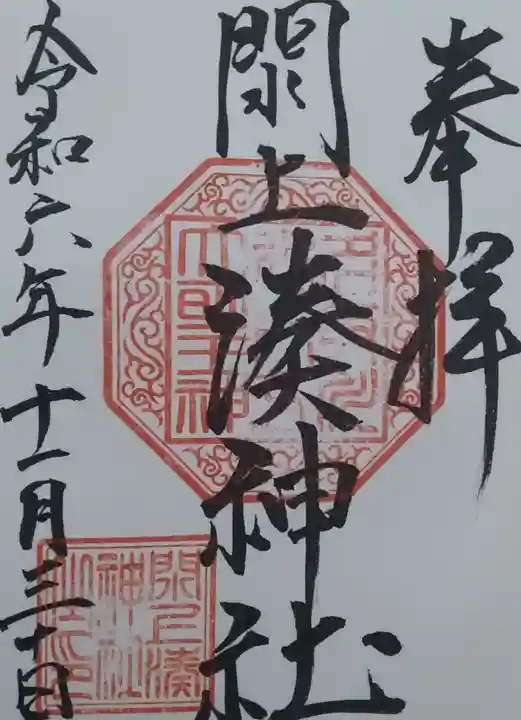 奉拝
閖上湊神社
令和六年十一月三十日
閖上湊
神社